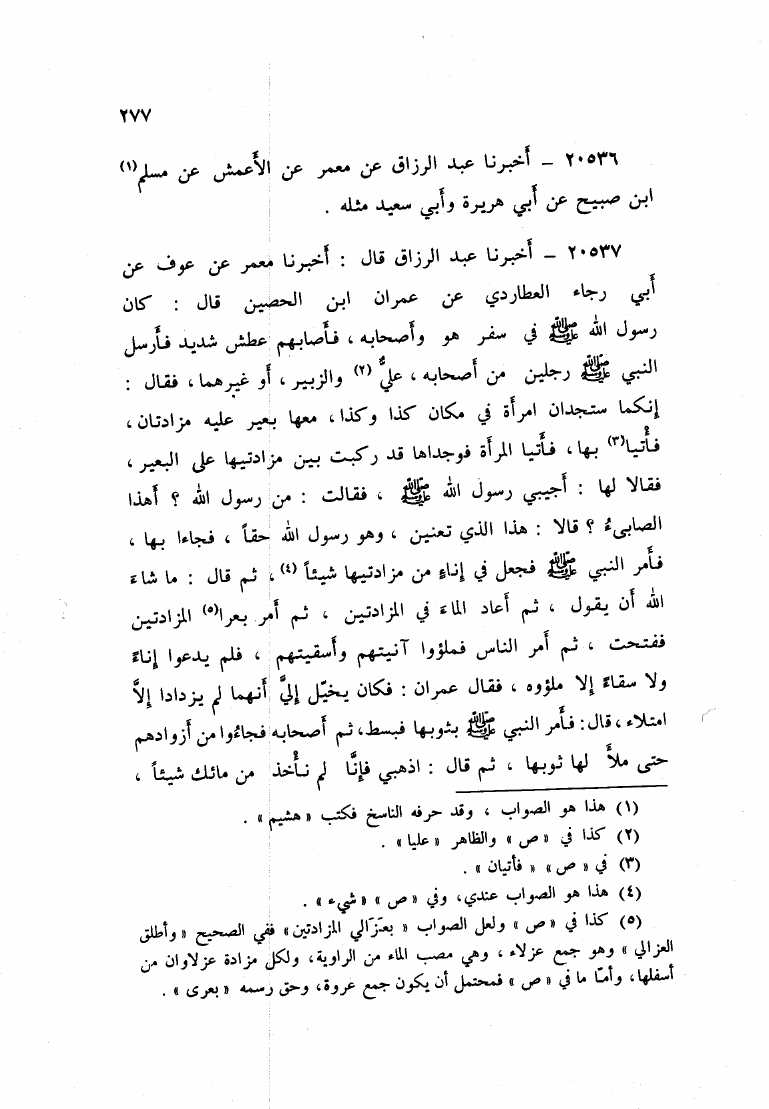 ٢٧٧
٢٠٥٣٦ – أخبرنا عبد الرزاق عن معمر عن الأعمش عن مسلم(١)
ابن صبيح عن أبي هريرة وأبي سعيد مثله .
٢٠٥٣٧ – أخبرنا عبد الرزاق قال : أخبرنا معمر عن عوف عن
أبي رجاء العطاردي عن عمران ابن الحصين قال : كان
رسول الله ﷺ في سفر هو وأصحابه ، فأصابهم عطش شديد فأرسل
النبي ﷺ رجلين من أصحابه ، عليٌّ (٢) والزبير ، أو غيرهما ، فقال :
إنكما ستجدان امرأة في مكان كذا وكذا ، معها بعير عليه مزادتان ،
فأْتيا(٣) بها ، فأتيا المرأة فوجداها قد ركبت بين مزادتيها على البعير ،
فقالا لها : أجيبي رسول الله ﷺ ، فقالت : من رسول الله ؟ أهذا
الصابىءُ ؟ قالا : هذا الذي تعنين ، وهو رسول الله حقاً ، فجاءا بها ،
فأمر النبي ﷺ فجعل في إناءٍ من مزادتيها شيئاً (٤) ، ثم قال : ما شاءَ
الله أن يقول ، ثم أعاد الماءَ في المزادتين ، ثم أمر بعرا(٥) المزادتين
ففتحت ، ثم أمر الناس فملؤوا آنيتهم وأسقيتهم ، فلم يدعوا إناءً
ولا سقاءً إلا ملؤوه ، فقال عمران : فكان يخيّل إليَّ أنهما لم يزدادا إلاَّ
امتلاء ، قال : فأمر النبي ﷺ بثوبها فبسط ، ثم أصحابه فجاءُوا من أزوادهم
حتى ملأَ لها ثوبها ، ثم قال : اذهبي فإنَّا لم نأْخذ من مائك شيئاً ،
(١) هذا هو الصواب ، وقد حرفه الناسخ فكتب « هشيم » .
(٢) كذا في « ص » والظاهر « عليا » .
(٣) في « ص » « فأتيان » .
(٤) هذا هو الصواب عندي، وفي « ص » « شيء » .
(٥) كذا في « ص » ولعل الصواب « بعَزَالي المزادتين » ففي الصحيح « وأطلق
العزالي » وهو جمع عزلاء ، وهي مصب الماء من الراوية، ولكل مزادة عزلاوان من
أسفلها، وأمّا ما في « ص » فمحتمل أن يكون جمع عروة، وحق رسمه « بعرى » .